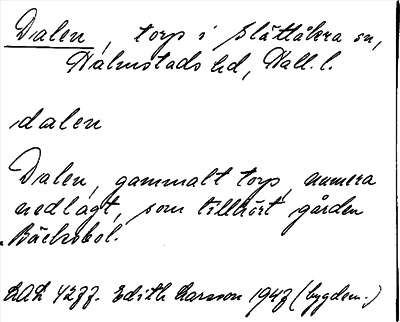 Dalen, torp i Slättåkra sn,
Halmstads hd, Hall. l.
dalen
Dalen, gammalt torp, numera
nedlagt, som tillhört gården
Bäcksbol.
Edith Larsson 1947 (bygdem.)